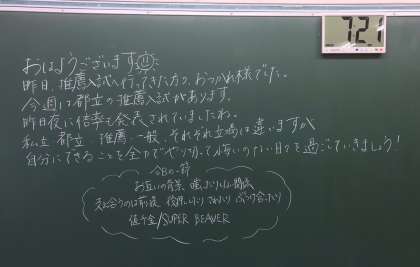 7:21
おはようございます
昨日、推薦入試へ行ってきた方々、おつかれ様でした。
今週は都立の推薦入試があります。
昨日夜に倍率も発表されていましたね。
私立、都立、推薦、一般、それぞれ立場は違いますが
自分にできることを全力でやり切って悔いのない日々を過ごしていきましょう!
今日の一節
お互いの背景 嘘のない関係
支え合うのは前提
値千金/SUPER BEAVER